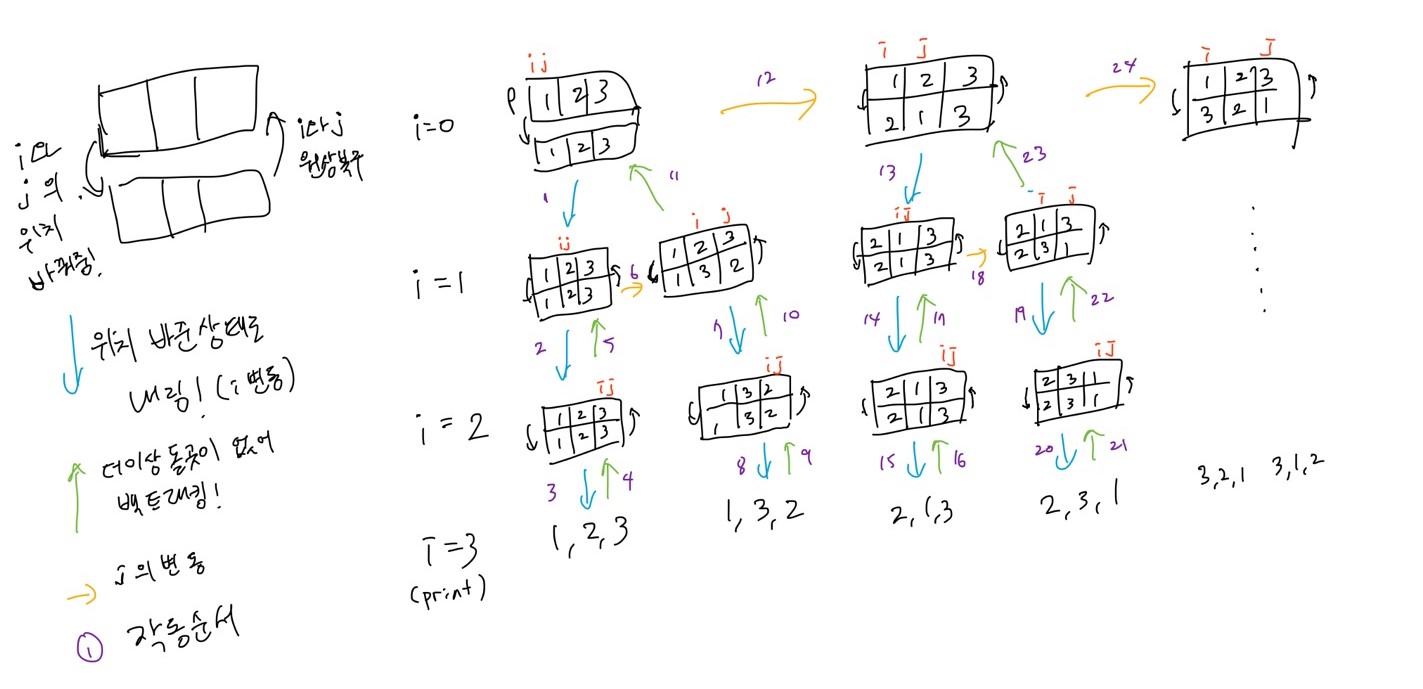 i와
j의
위치
바꿔줌!
i와 j
원상복구
위치 바꾼상태로
내림! (i 변동)
더이상 돌곳이 없어
백트래킹!
J의변동
1 작동순서
i=0
i=1
i=2
i=3
(print)
ij
P 1 2 3
1 2 3
12
i J
1 2 3
2 1 3
24
i J
1 2 3
3 2 1
1
11
13
23
ij
1 2 3
1 2 3
6
i j
1 2 3
1 3 2
iJ
2 1 3
2 1 3
18
i J
2 1 3
2 3 1
2
5
7
10
14
17
19
22
iJ
1 2 3
1 2 3
iJ
1 3 2
1 3 2
iJ
2 1 3
2 1 3
iJ
2 3 1
2 3 1
3
4
8
9
15
16
20
21
1, 2, 3
1, 3, 2
2, 1, 3
2, 3, 1
3, 2, 1
3, 1, 2